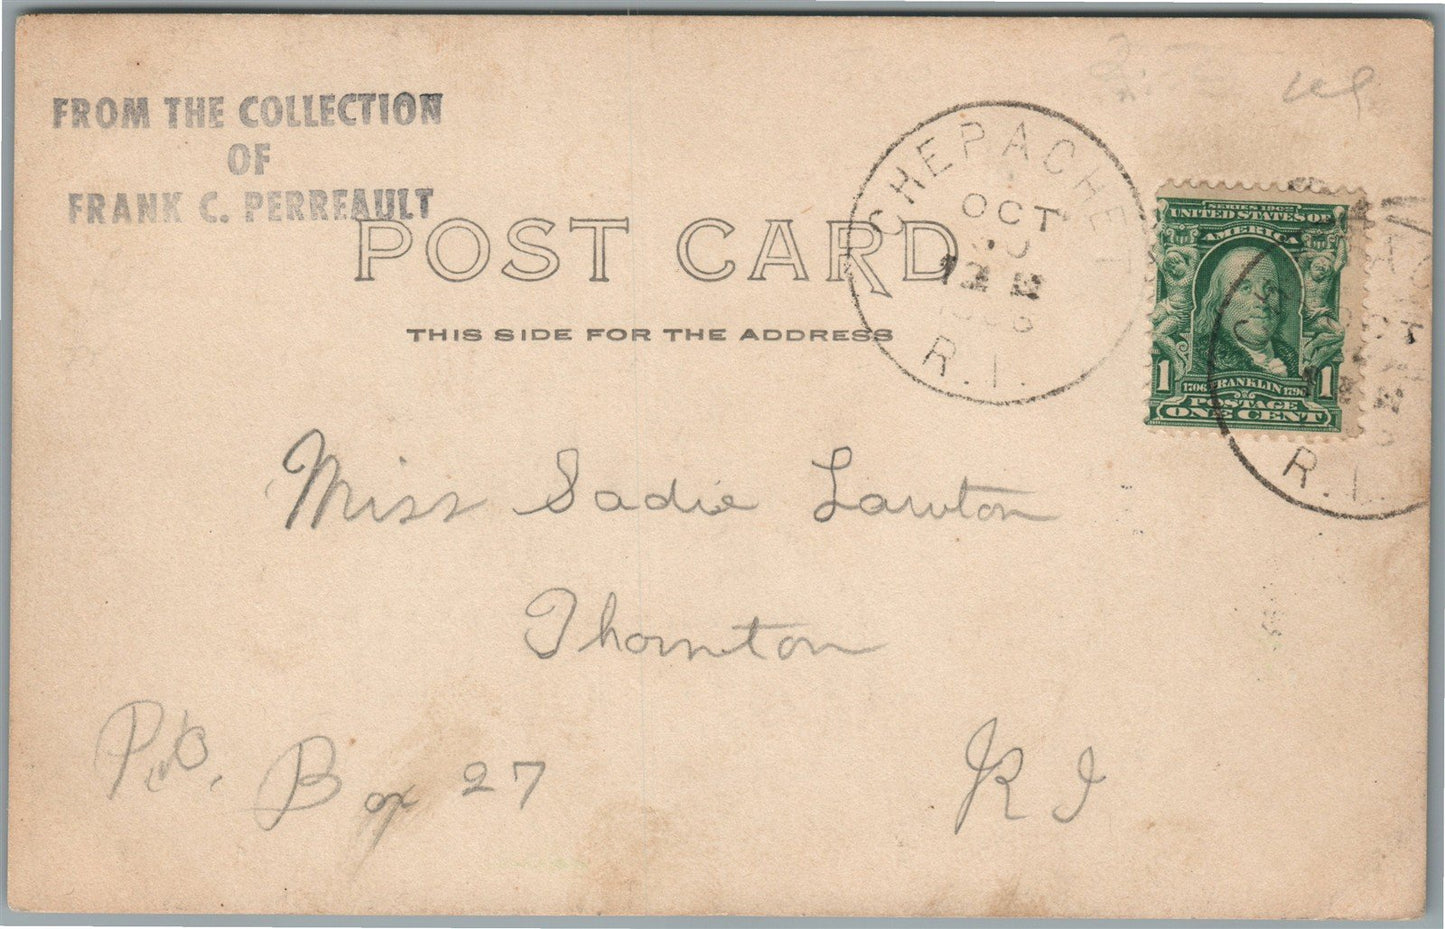 FROM THE COLLECTION
OF
FRANK C. PERREAULT
POST CARD
THIS SIDE FOR THE ADDRESS
CHEPACHET
OCT
12 M
1906
R.I.
SERIES 1902
UNITED STATES OF
AMERICA
1 1706 FRANKLIN 1790 1
POSTAGE
ONE CENT
R.I.
Miss Sadie Lawton
Thornton
P.O. Box 27 R I